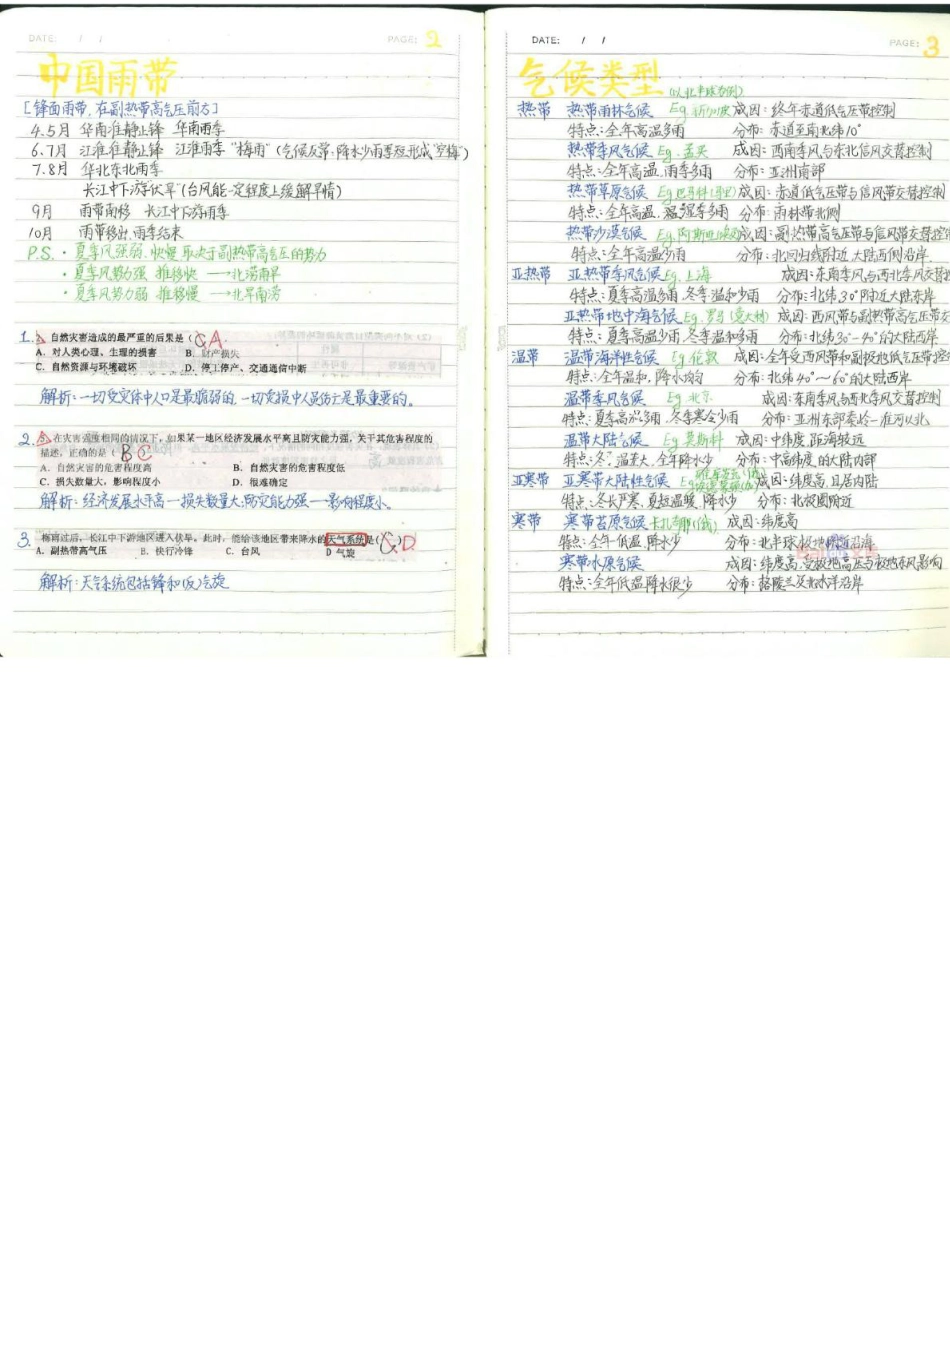 DATE: / /
PAGE: 2
中国雨带
[锋面雨带,在副热带高气压前方]
4.5月 华南准静止锋 华南雨季
6.7月 江淮准静止锋 江淮雨季 "梅雨"(气候反常,降水少雨季短形成"空梅")
7.8月 华北东北雨季
长江中下游"伏旱"(台风能一定程度上缓解旱情)
9月 雨带南移 长江中下游雨季
10月 雨带移出,雨季结束
P.S. · 夏季风强弱、快慢取决于副热带高气压的势力
· 夏季风势力强 推移快 → 北涝南旱
· 夏季风势力弱 推移慢 → 北旱南涝
1. 自然灾害造成的最严重的后果是( C A
A. 对人类心理、生理的损害 B. 财产损失
C. 自然资源与环境破坏 D. 停工停产、交通通信中断
解析:一切受灾体中人口是最脆弱的,一切受损中人员伤亡是最重要的。
2. 在灾害强度相同的情况下,如果某一地区经济发展水平高且防灾能力强,关于其危害程度的
描述,正确的是( B C
A. 自然灾害的危害程度高 B. 自然灾害的危害程度低
C. 损失数量大,影响程度小 D. 很难确定
解析:经济发展水平高—损失数量大;防灾能力强—影响程度小。
3. 梅雨过后,长江中下游地区进入伏旱。此时,能给该地区带来降水的天气系统是( C ) D
A. 副热带高气压 B. 快行冷锋 C. 台风 D 气旋
解析:天气系统包括锋和(反)气旋
DATE: / /
PAGE: 3
气候类型 (以北半球为例)
热带 热带雨林气候 Eg.新加坡 成因:终年赤道低气压带控制
特点:全年高温多雨 分布:赤道至南北纬10°
热带季风气候 Eg.孟买 成因:西南季风与东北信风交替控制
特点:全年高温,雨季多雨 分布:亚洲南部
热带草原气候 成因:赤道低气压带与信风带交替控制
特点:全年高温, 湿季多雨 分布:雨林带北侧
热带沙漠气候 成因:副热带高气压带与信风带交替控
特点:全年高温少雨 分布:北回归线附近大陆西侧沿岸
亚热带 亚热带季风气候 Eg.上海 成因:东南季风与西北季风交替
特点:夏季高温多雨,冬季温和少雨 分布:北纬30°附近大陆东岸
亚热带地中海气候 Eg.罗马(意大利) 成因:西风带与副热带高气压带交
特点:夏季高温少雨,冬季温和多雨 分布:北纬30°-40°的大陆西岸
温带 温带海洋性气候 Eg.伦敦 成因:全年受西风带和副极地低气压带控
特点:全年温和,降水均匀 分布:北纬40°~60°的大陆西岸
温带季风气候 Eg.北京 成因:东南季风与西北季风交替控制
特点:夏季高温多雨,冬季寒冷少雨 分布:亚洲东部秦岭-淮河以北
温带大陆气候 Eg.莫斯科 成因:中纬度,距海较远
特点:冬, 温差大,全年降水少 分布:中高纬度的大陆内部
亚寒带 亚寒带大陆性气候 成因:纬度高,且居内陆
特点:冬长严寒,夏短温暖,降水少 分布:北极圈附近
寒带 寒带苔原气候 成因:纬度高
特点:全年低温,降水少 分布:北半球极地 沿海
寒带冰原气候 成因:纬度高,受极地高压与极地东风影响
特点:全年低温,降水很少 分布:格陵兰及北冰洋沿岸